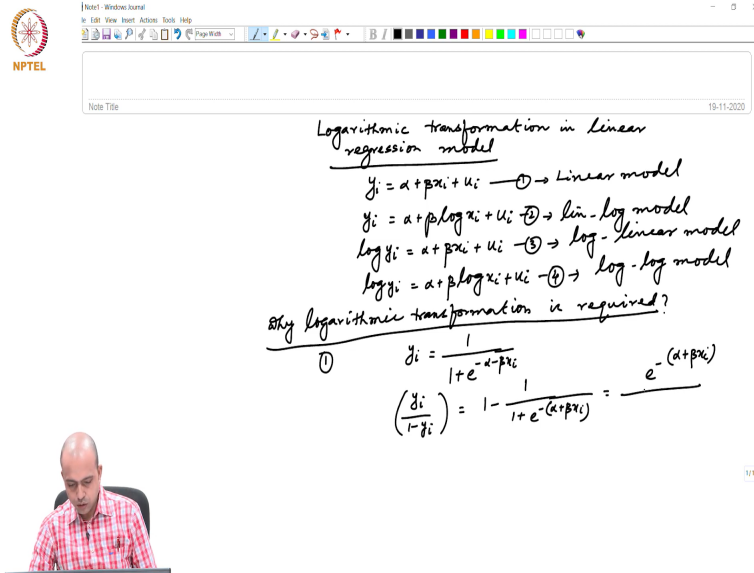 Note1 - Windows Journal
le Edit View Insert Actions Tools Help
Page Width
B I
NPTEL
Note Title
19-11-2020
Logarithmic transformation in linear
regression model
yi = α + βxi + ui —① → Linear model
yi = α + β log xi + ui -② → lin-log model
log yi = α + βxi + ui -③ → log-linear model
log yi = α + β log xi + ui -④ → log-log model
Why logarithmic transformation is required?
① yi = 1 / (1 + e^(-α-βxi))
(yi / (1-yi)) = 1 - 1 / (1 + e^-(α+βxi)) = e^-(α+βxi) /
1/1